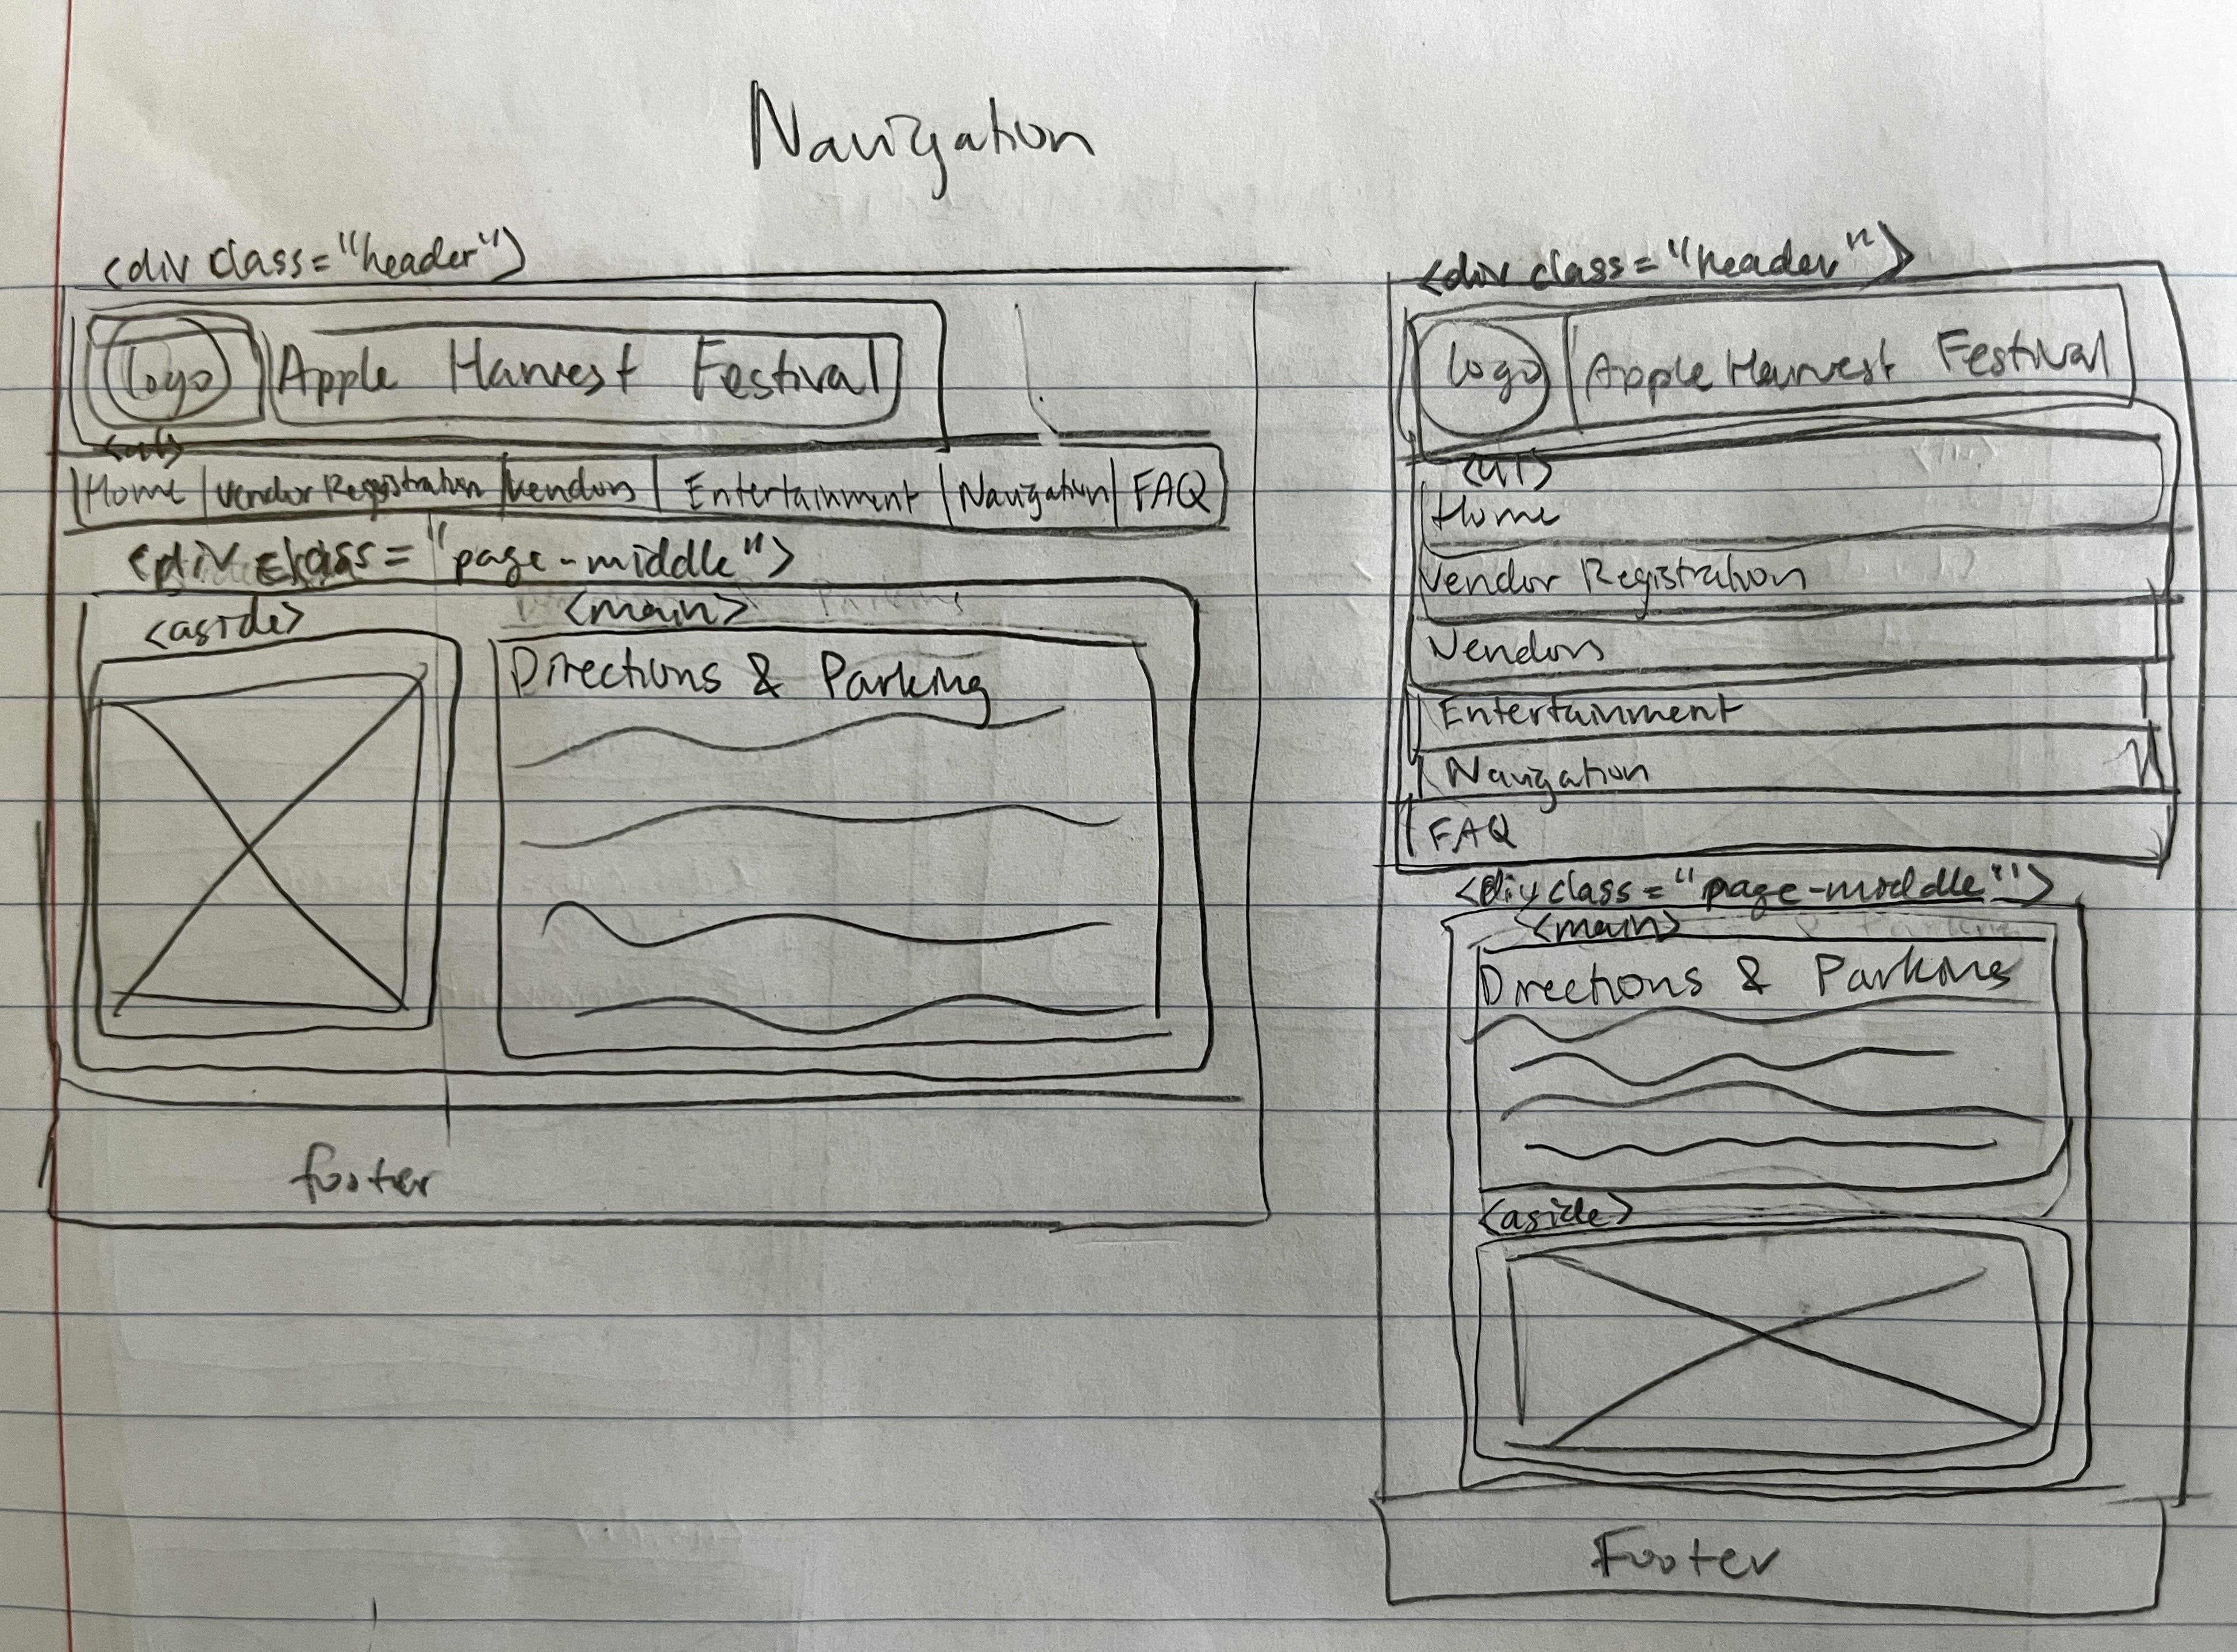 Navigation
<div class="header">
logo Apple Harvest Festival
<ul>
Home Vendor Registration Vendors Entertainment Navigation FAQ
<div class="page-middle">
<aside> <main>
Directions & Parking
footer
<div class="header">
logo Apple Harvest Festival
<ul>
Home
Vendor Registration
Vendors
Entertainment
Navigation
FAQ
<div class="page-middle">
<main>
Directions & Parking
<aside>
Footer